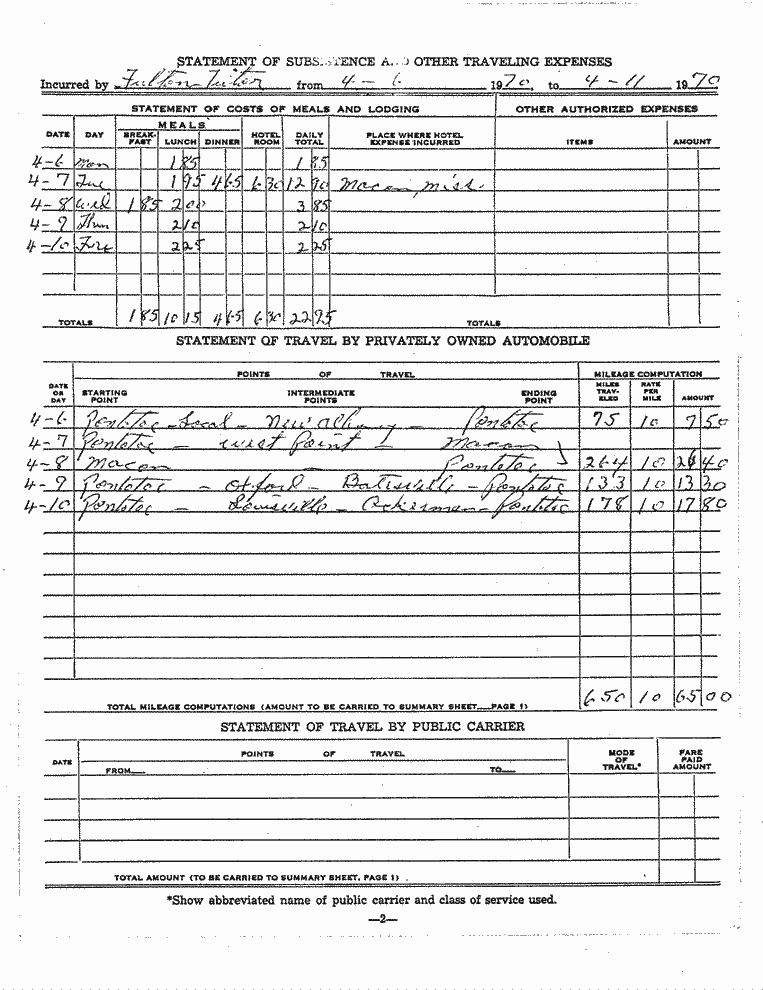 STATEMENT OF SUBSISTENCE A.. OTHER TRAVELING EXPENSES
Incurred by Fulton Tutor from 4 - 6 1970, to 4 - 11 1970
STATEMENT OF COSTS OF MEALS AND LODGING OTHER AUTHORIZED EXPENSES
DATE DAY MEALS BREAK-FAST LUNCH DINNER HOTEL ROOM DAILY TOTAL PLACE WHERE HOTEL EXPENSE INCURRED ITEMS AMOUNT
4-6 Mon 1 85 1 85
4-7 Tue 1 95 4 65 6 30 12 90 Macon, Miss.
4-8 Wed 1 85 2 00 3 85
4-9 Thur 2 10 2 10
4-10 Fri 2 25 2 25
TOTALS 1 85 10 15 4 65 6 30 22 95 TOTALS
STATEMENT OF TRAVEL BY PRIVATELY OWNED AUTOMOBILE
POINTS OF TRAVEL MILEAGE COMPUTATION
DATE OR DAY STARTING POINT INTERMEDIATE POINTS ENDING POINT MILES TRAV-ELED RATE PER MILE AMOUNT
4-6 Pontotoc - Local - New Albany - Pontotoc 75 10 7 50
4-7 Pontotoc - West Point - Macon
4-8 Macon - Pontotoc 264 10 26 40
4-9 Pontotoc - Oxford - Batesville - Pontotoc 133 10 13 30
4-10 Pontotoc - Louisville - Ackerman - Pontotoc 178 10 17 80
TOTAL MILEAGE COMPUTATIONS (AMOUNT TO BE CARRIED TO SUMMARY SHEET—PAGE 1) 650 10 65 00
STATEMENT OF TRAVEL BY PUBLIC CARRIER
DATE POINTS OF TRAVEL MODE OF TRAVEL* FARE PAID AMOUNT
FROM— TO—
TOTAL AMOUNT (TO BE CARRIED TO SUMMARY SHEET, PAGE 1)
*Show abbreviated name of public carrier and class of service used.
—2—